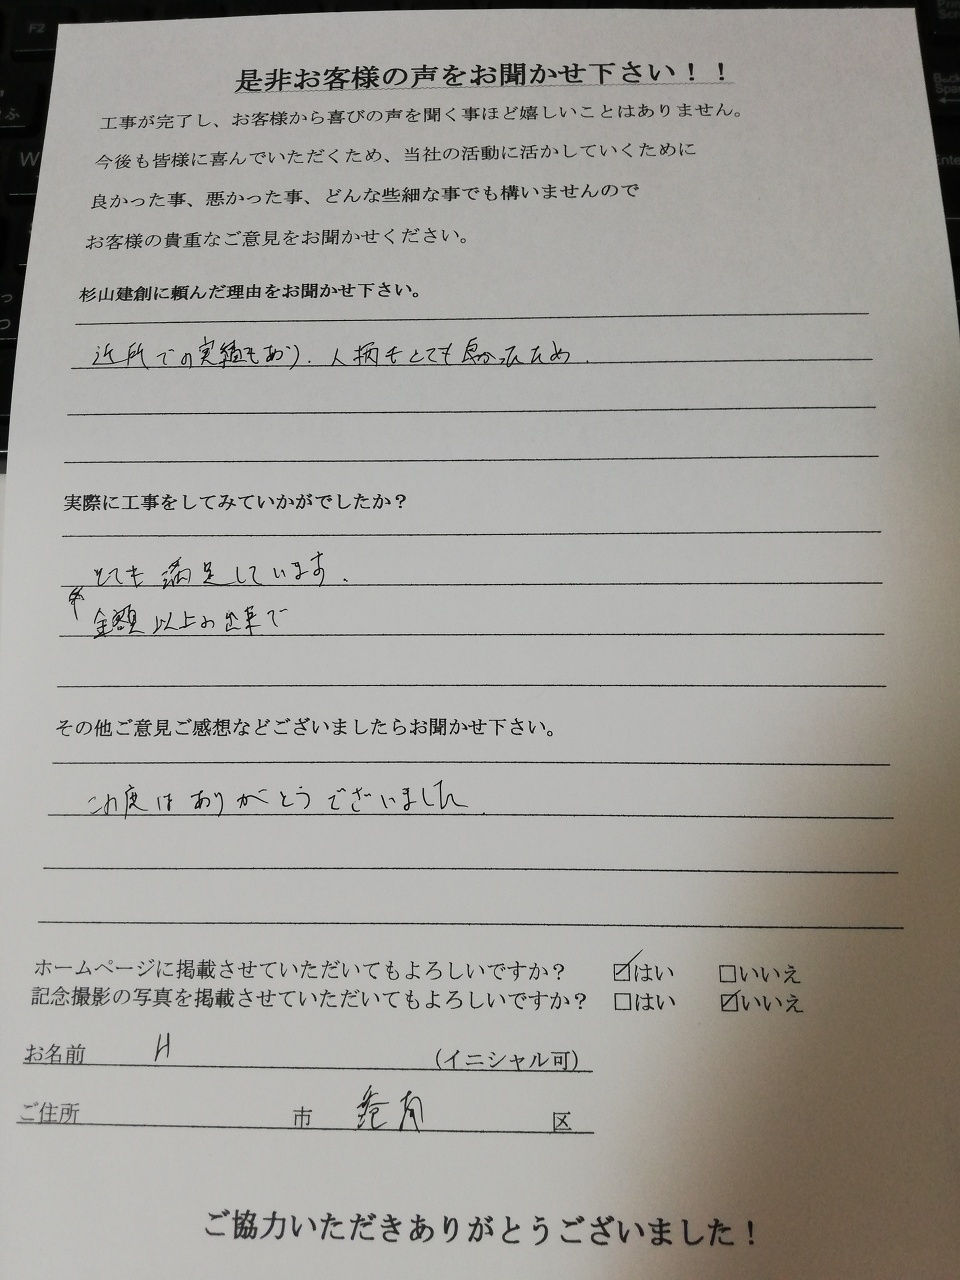 是非お客様の声をお聞かせ下さい！！
工事が完了し、お客様から喜びの声を聞く事ほど嬉しいことはありません。
今後も皆様に喜んでいただくため、当社の活動に活かしていくために
良かった事、悪かった事、どんな些細な事でも構いませんので
お客様の貴重なご意見をお聞かせください。
杉山建創に頼んだ理由をお聞かせ下さい。
近所での実績もあり、人柄もとても良かったため.
実際に工事をしてみていかがでしたか？
とても満足しています.
金額以上の出来で
その他ご意見ご感想などございましたらお聞かせ下さい。
この度はありがとうございました.
ホームページに掲載させていただいてもよろしいですか？ ☑はい □いいえ
記念撮影の写真を掲載させていただいてもよろしいですか？ □はい ☑いいえ
お名前 H (イニシャル可)
ご住所 市 区
ご協力いただきありがとうございました！